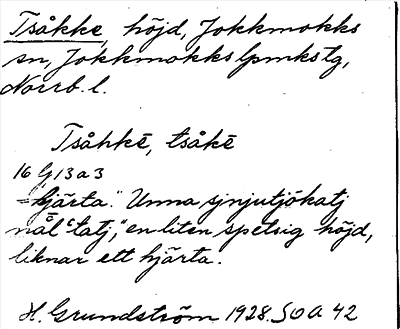 Tsåkke, höjd, Jokkmokks
sn, Jokkmokks lpmkstg,
Norrb. l.
Tsåhkē, tsåkē
16 G 13 a 3
= "hjärta." Unna
en liten spetsig höjd,
liknar ett hjärta.
H. Grundström 1928. SOA 42